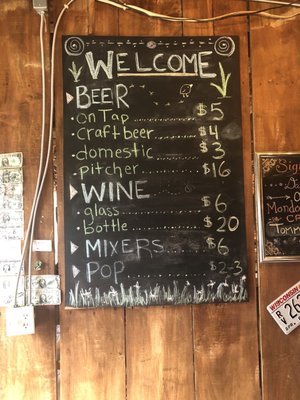 WELCOME
BEER
on Tap ........ $5
craft beer ........ $4
domestic ........ $3
pitcher ........ $16
WINE
glass ........ $6
bottle ........ $20
MIXERS ........ $6
POP ........ $2-3
Monda
WISCONSIN